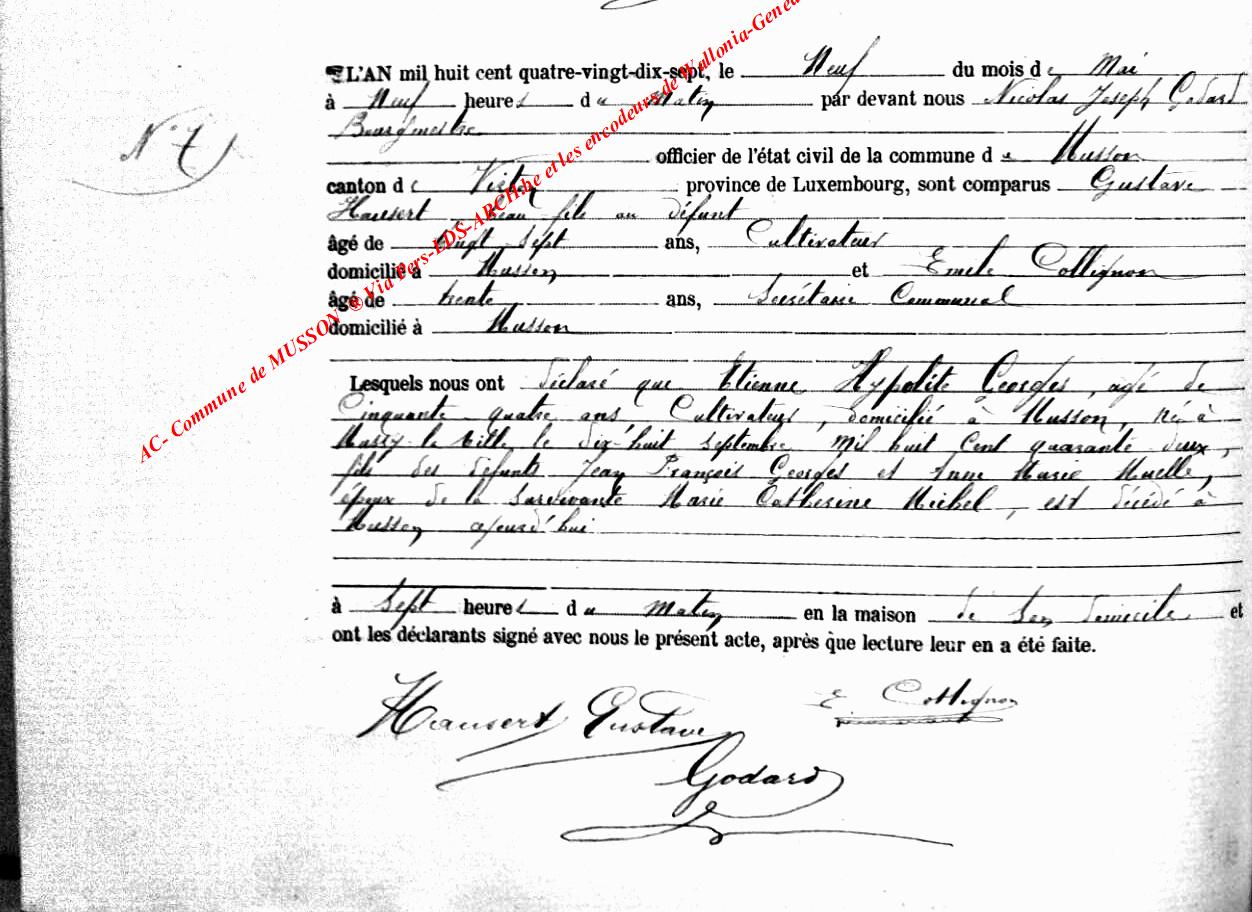 L'AN mil huit cent quatre-vingt-dix-sept, le Neuf du mois de Mai
à Neuf heures du Matin par devant nous Nicolas Joseph Godard
Bourgmestre
N° 7
officier de l'état civil de la commune de Musson
canton de Virton province de Luxembourg, sont comparus Gustave
Hausert beau fils au défunt
âgé de vingt sept ans, Cultivateur
domicilié à Musson et Emile Collignon
âgé de trente ans, Secrétaire Communal
domicilié à Musson
Lesquels nous ont déclaré que Etienne Hypolite Georges, agé de
Cinquante quatre ans, Cultivateur, domicilié à Musson, né à
Mussy-la-Ville, le dix-huit Septembre Mil huit Cent quarante deux,
fils des défunts Jean François Georges et Anne Marie Muelle,
époux de la survivante Marie Catherine Michel, est décédé à
Musson aujourd'hui
à Sept heures du matin en la maison de son domicile et
ont les déclarants signé avec nous le présent acte, après que lecture leur en a été faite.
Hausert Gustave
E Collignon
Godard
AC- Commune de MUSSON ® Via Pers-LDS-ARCH.be et les encodeurs de Wallonia-Genea